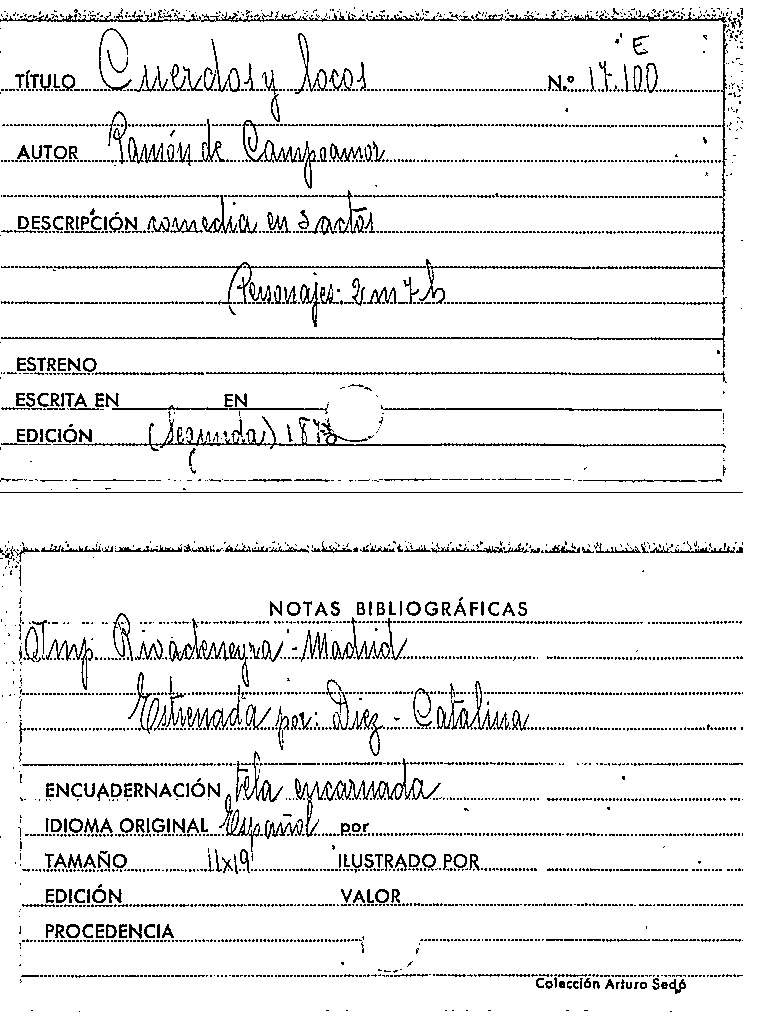 E
TÍTULO Cuerdos y locos N.º 17.100
AUTOR Ramón de Campoamor
DESCRIPCIÓN comedia en 3 actos
Personajes: 2 m 7 h
ESTRENO
ESCRITA EN EN
EDICIÓN (Segunda) 1873
NOTAS BIBLIOGRÁFICAS
Imp. Rivadeneyra - Madrid
Estrenada por: Diez - Catalina
ENCUADERNACIÓN tela encarnada
IDIOMA ORIGINAL Español por
TAMAÑO 11x19 ILUSTRADO POR
EDICIÓN VALOR
PROCEDENCIA
Colección Arturo Sedó